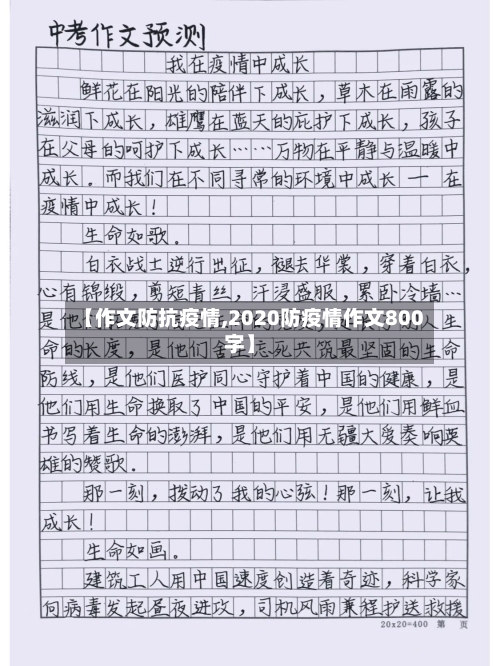 中考作文预测
我在疫情中成长
鲜花在阳光的陪伴下成长，草木在雨露的
滋润下成长，雄鹰在蓝天的庇护下成长，孩子
在父母的呵护下成长……万物在平静与温暖中
成长。而我们在不同寻常的环境中成长——在
疫情中成长！
生命如歌。
白衣战士逆行出征，褪去华裳，穿着白衣，
心有锦缎，剪短青丝，汗浸盛服，累卧冷墙…
【作文防抗疫情,2020防疫情作文800
字】
的长度，是他们舍生忘死共筑最坚固的生命
防线，是他们医护同心守护着中国的健康，是
他们用生命换取了中国的平安，是他们用鲜血
书写着生命的澎湃，是他们用无疆大爱奏响英
雄的赞歌。
那一刻，拨动了我的心弦！那一刻，让我
成长！
生命如画。
建筑工人用中国速度创造着奇迹，科学家
向病毒发起昼夜进攻，司机风雨兼程护送救援
20x20=400 第 页